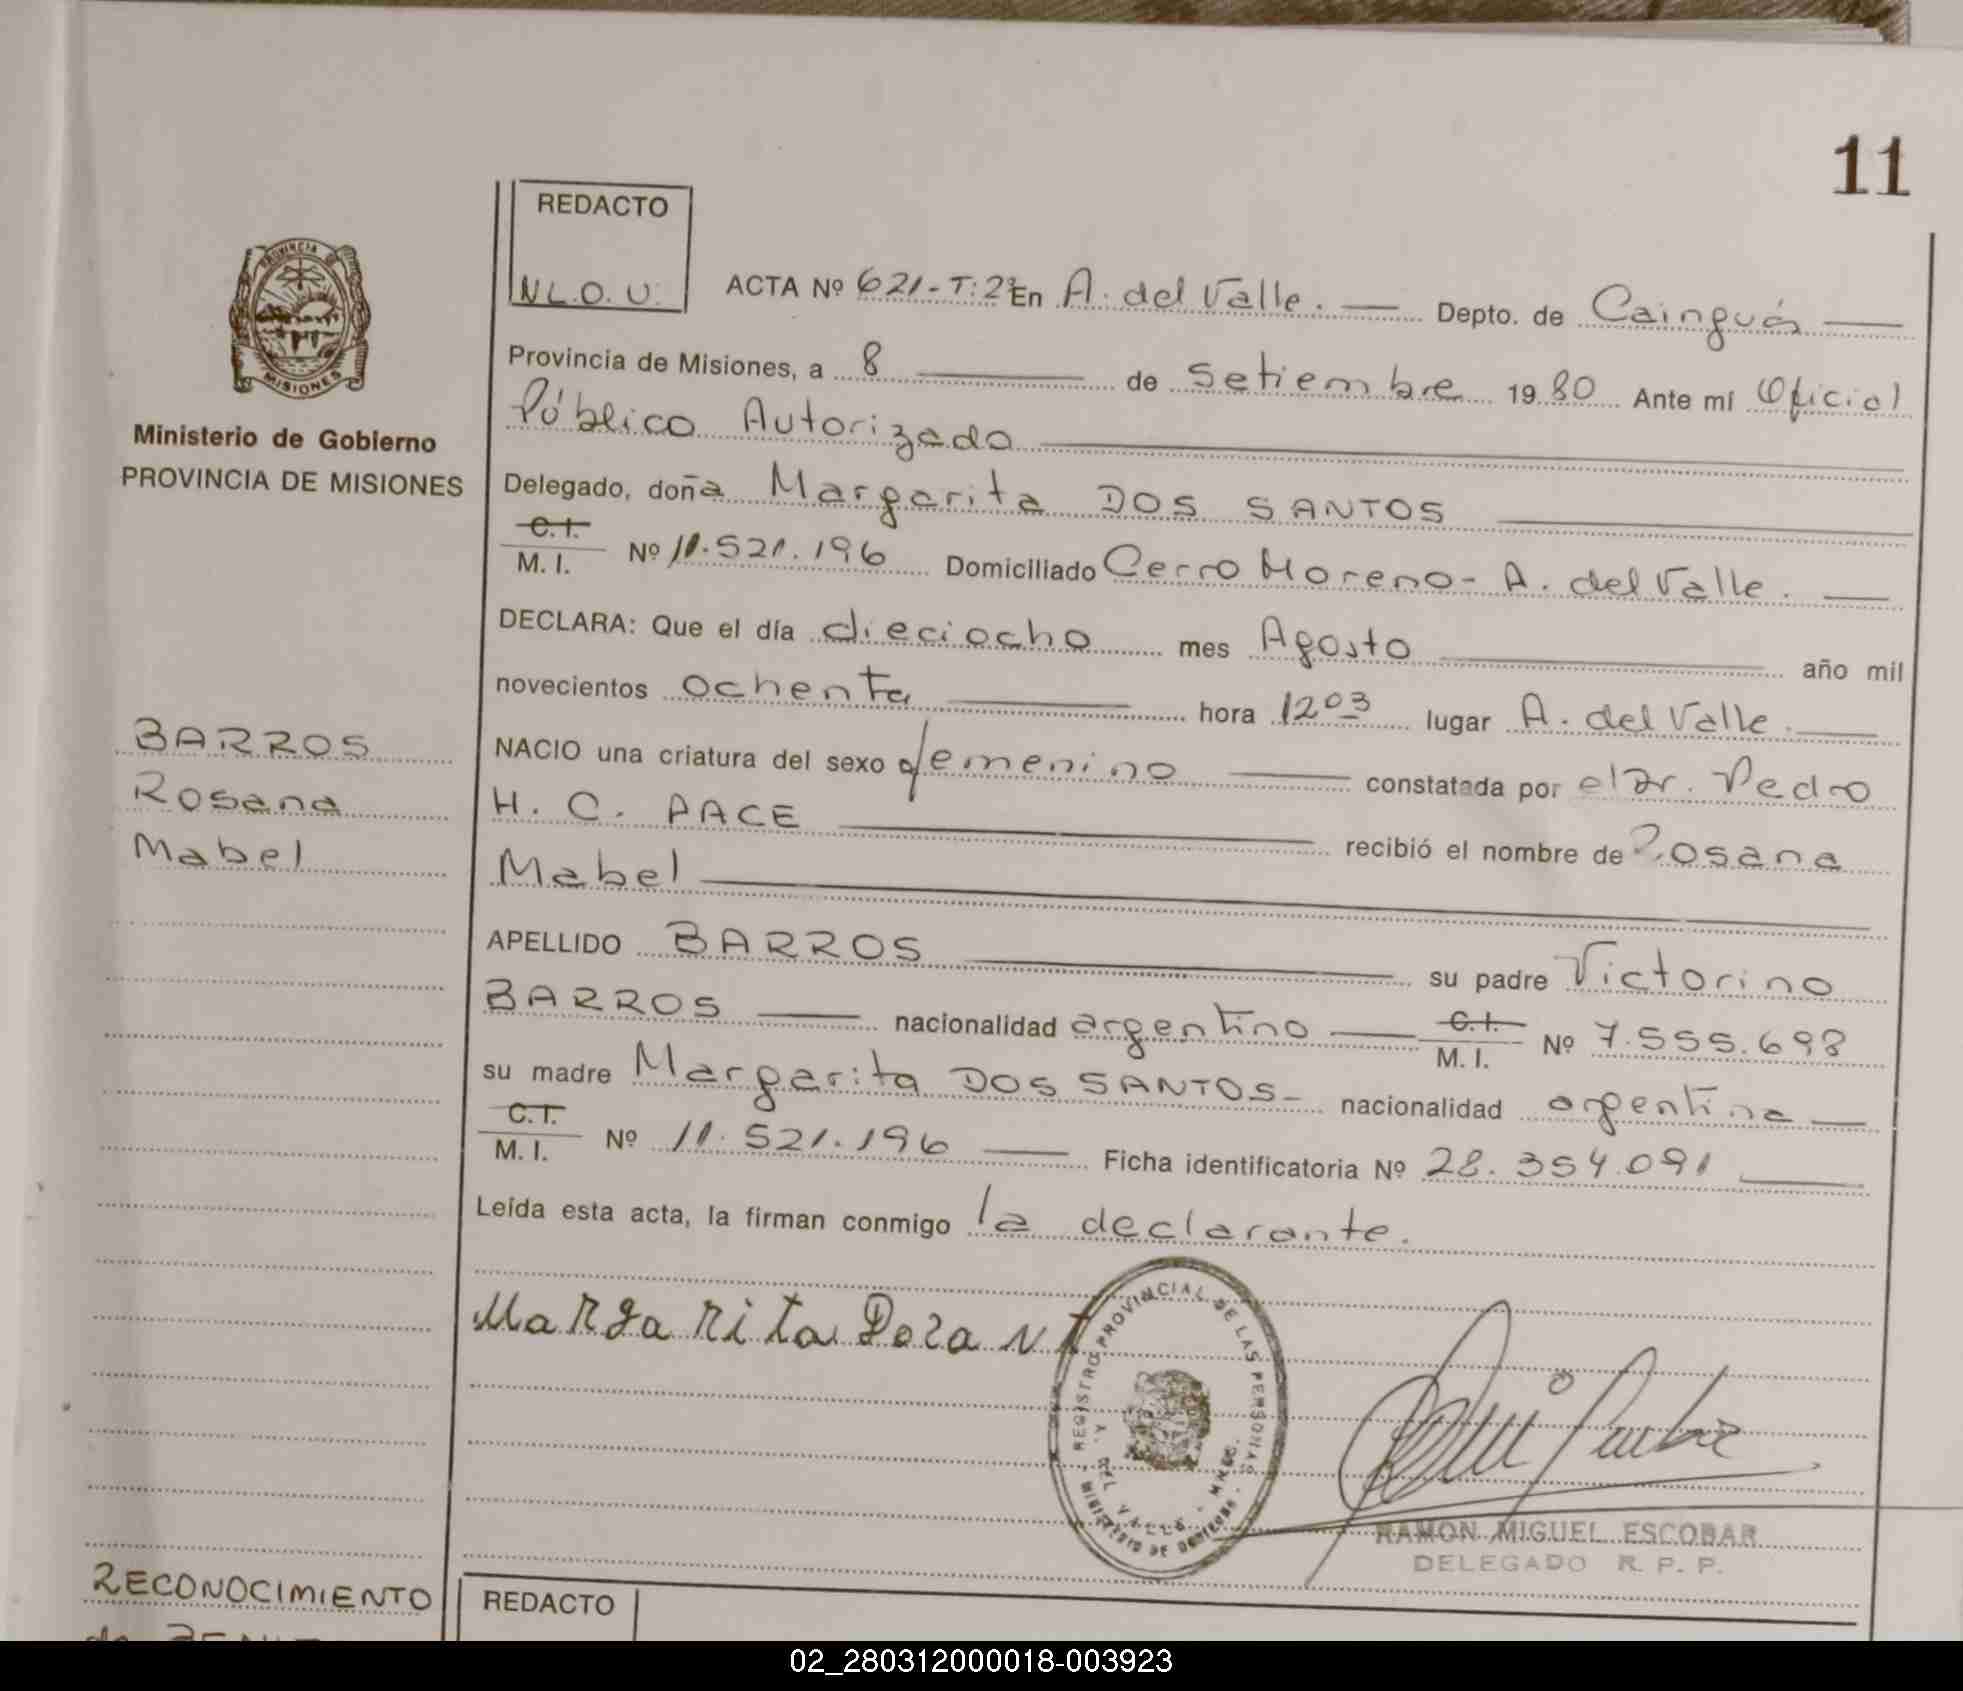 11
REDACTO
N.L.O.U.
ACTA Nº 621-T:2º En A. del Valle. Depto. de Cainguás
Provincia de Misiones, a 8 de Setiembre 1980 Ante mí Oficial
Público Autorizado
Delegado, doña Margarita DOS SANTOS
C.I.
M. I. Nº 11.521.196 Domiciliado Cerro Moreno - A. del Valle.
DECLARA: Que el día dieciocho mes Agosto año mil
novecientos ochenta hora 12 03 lugar A. del Valle.
NACIO una criatura del sexo femenino constatada por el Dr. Pedro
H. C. PACE recibió el nombre de Rosana
Mabel
APELLIDO BARROS su padre Victorino
BARROS nacionalidad argentino C.I.
M. I. Nº 7.555.698
su madre Margarita DOS SANTOS- nacionalidad argentina
C.I.
M. I. Nº 11.521.196 Ficha identificatoria Nº 28.354.091
Leída esta acta, la firman conmigo la declarante.
Margarita Dosant
REGISTRO PROVINCIAL DE LAS PERSONAS
MINISTERIO DE GOBIERNO
DEL VALLE - MNES.
RAMON MIGUEL ESCOBAR
DELEGADO R. P. P.
PROVINCIA DE
MISIONES
Ministerio de Gobierno
PROVINCIA DE MISIONES
BARROS
Rosana
Mabel
RECONOCIMIENTO
de
REDACTO
02_280312000018-003923